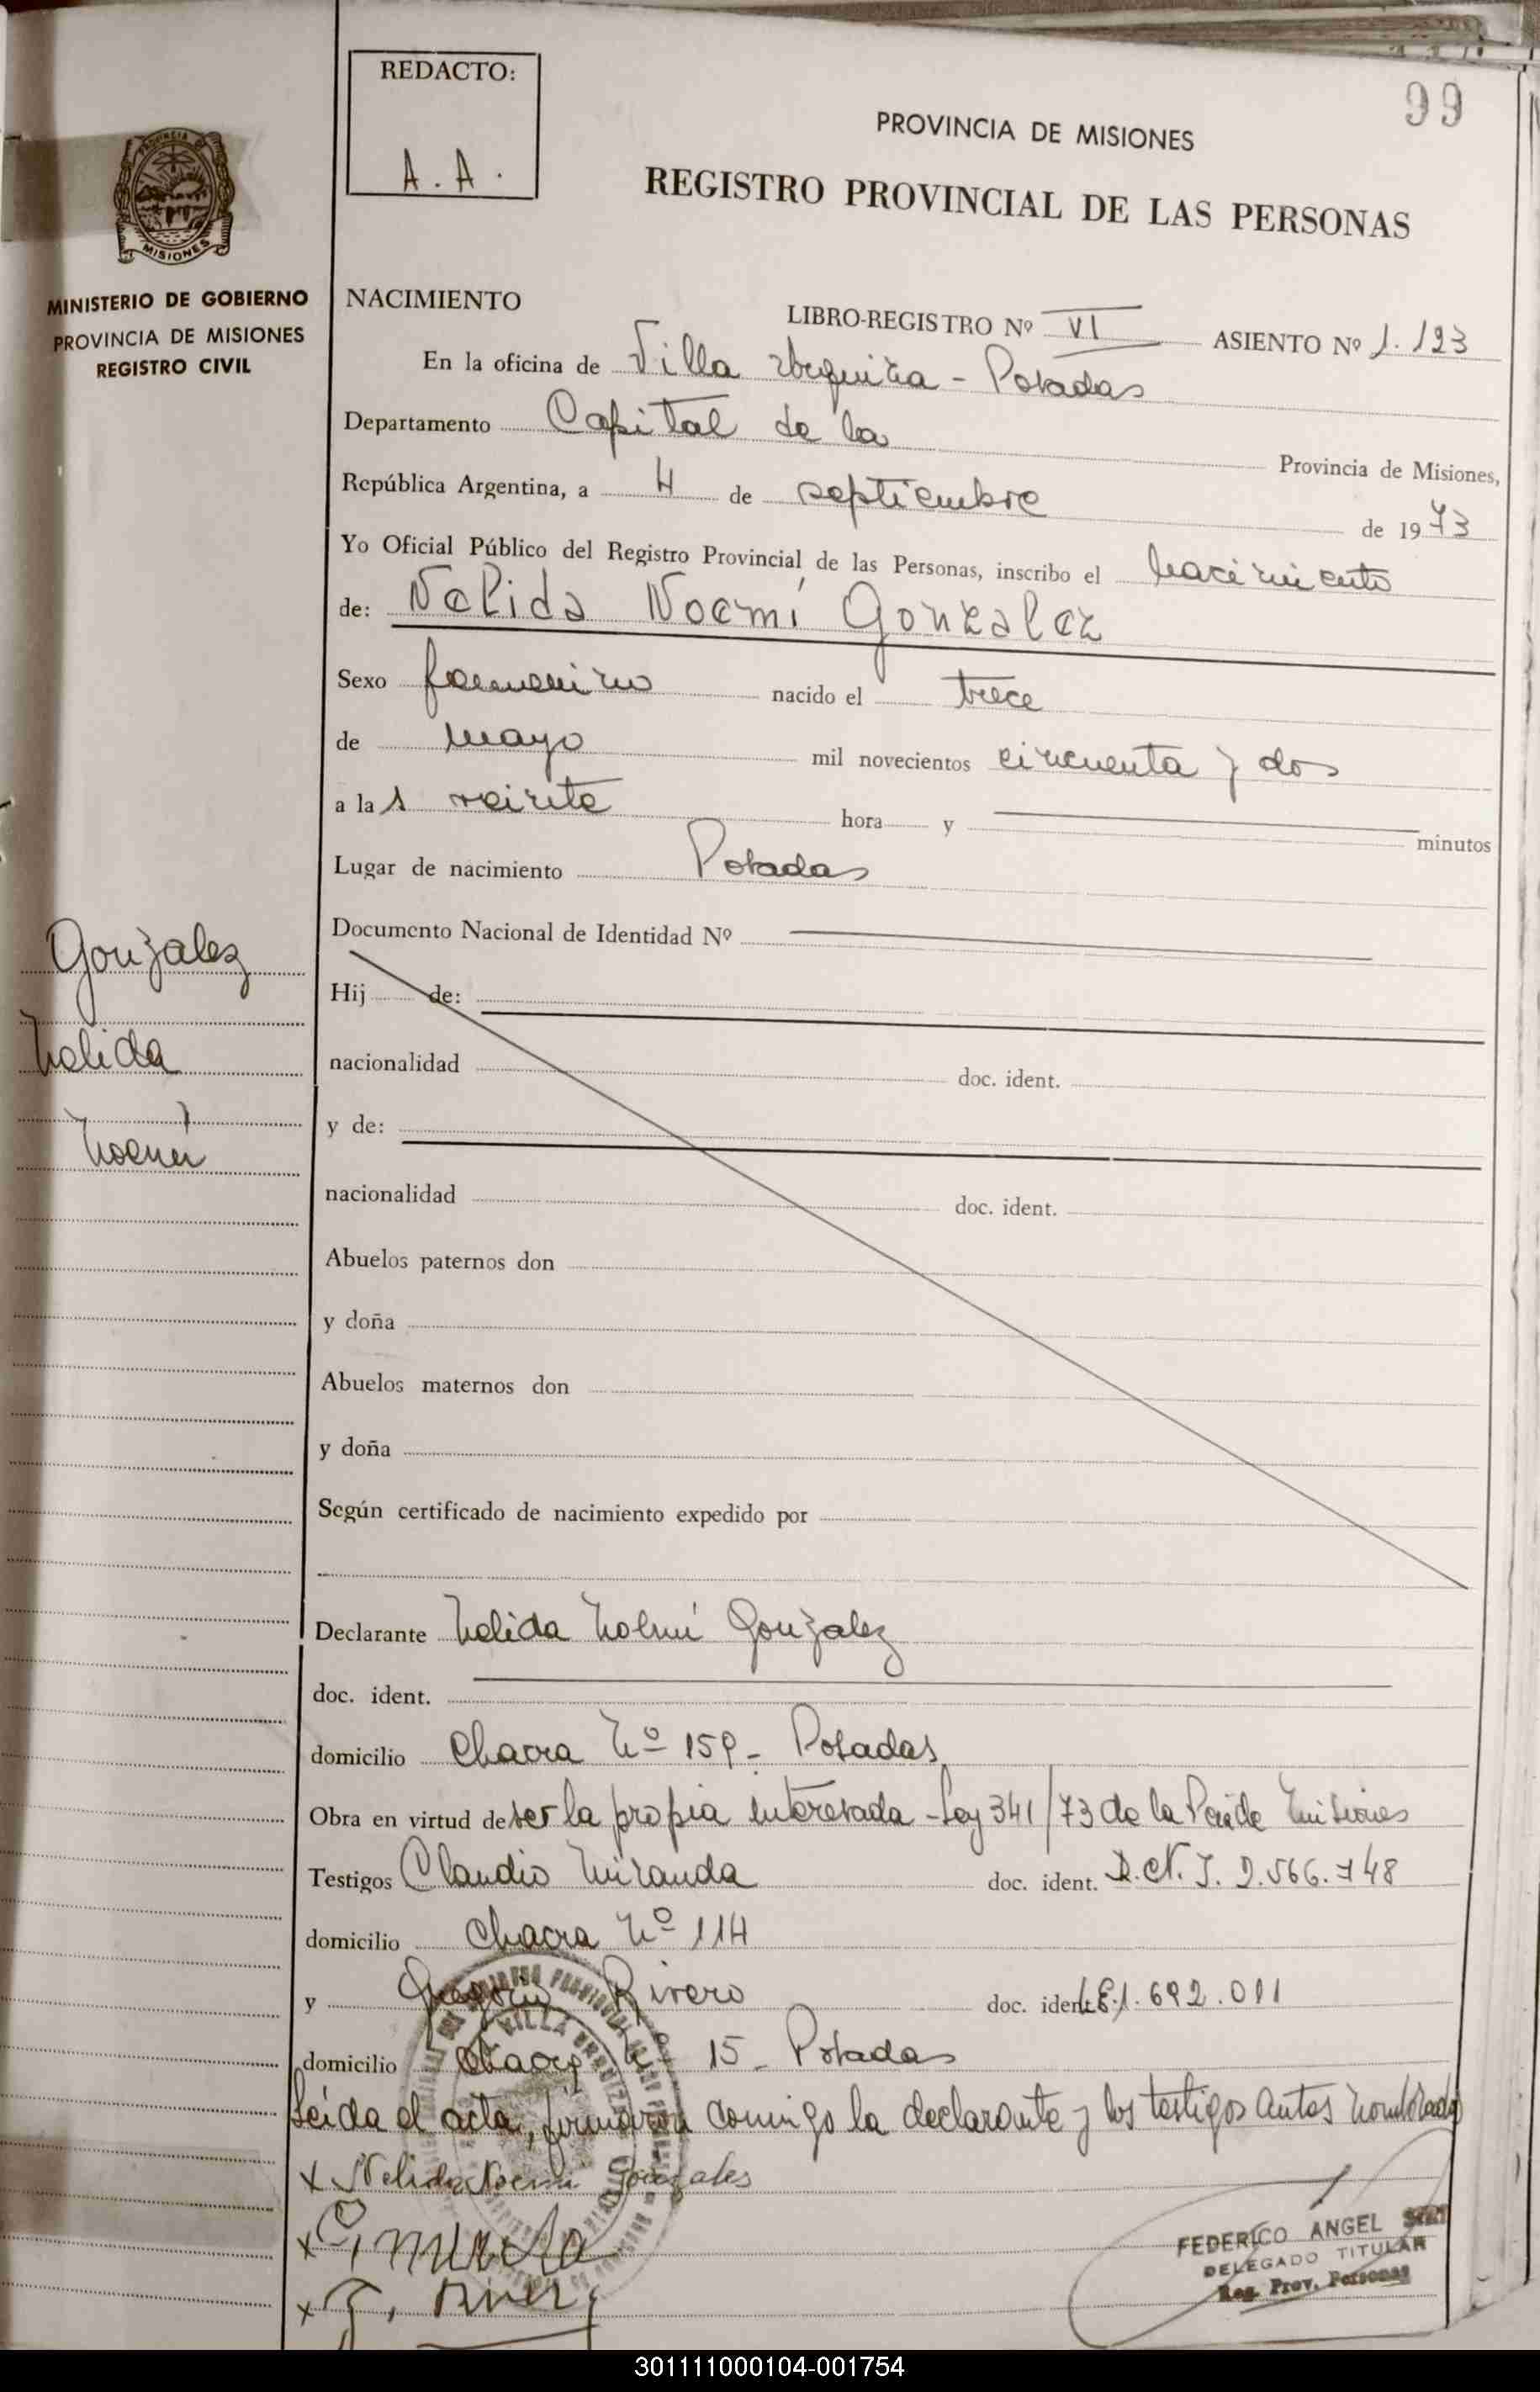 REDACTO:
A. A.
99
PROVINCIA DE MISIONES
REGISTRO PROVINCIAL DE LAS PERSONAS
PROVINCIA DE
MISIONES
MINISTERIO DE GOBIERNO
PROVINCIA DE MISIONES
REGISTRO CIVIL
NACIMIENTO
LIBRO-REGISTRO Nº VI ASIENTO Nº 1.123
En la oficina de Villa Urquiza - Posadas
Departamento Capital de la Provincia de Misiones,
República Argentina, a 4 de septiembre de 1973
Yo Oficial Público del Registro Provincial de las Personas, inscribo el nacimiento
de: Nelida Noemí Gonzalez
Sexo femenino nacido el trece
de mayo mil novecientos cincuenta y dos
a la s veinte hora y minutos
Lugar de nacimiento Posadas
Documento Nacional de Identidad Nº
Gonzalez
Nelida
Noemí
Hij de:
nacionalidad doc. ident.
y de:
nacionalidad doc. ident.
Abuelos paternos don
y doña
Abuelos maternos don
y doña
Según certificado de nacimiento expedido por
Declarante Nelida Noemí Gonzalez
doc. ident.
domicilio Chacra Nº 159 - Posadas
Obra en virtud de ser la propia interesada - Ley 341/73 de la Pcia de Misiones
Testigos Claudio Miranda doc. ident. D.N.I. 2.566.748
domicilio Chacra Nº 114
y Gregorio Rivero doc. ident. L.E. 1.692.011
domicilio Chacra Nº 15 - Posadas
Leída el acta, firmaron conmigo la declarante y los testigos antes nombrado
x Nelida Noemi Gonzales
x
x
FEDERICO ANGEL
DELEGADO TITULAR
Reg. Prov. Personas
301111000104-001754